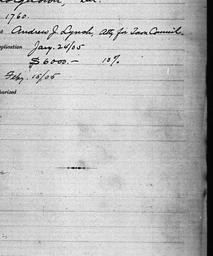 Georgetown, Del.
1760.
Andrew J. Lynch, Atty for Town Council.
pplication Jany. 24/05
$6000.— 10%
Feby. 15/05
horized